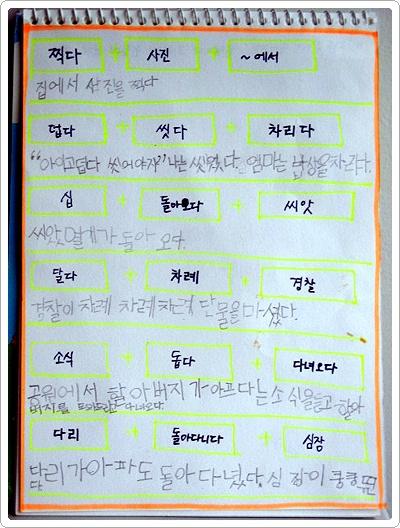 찍다 + 사진 + ~에서
집에서 사진을 찍다
덥다 + 씻다 + 차리다
"아이고덥다 씻어야지"나는 씻었다. 엄마는 밥상을차리다.
십 + 돌아오다 + 씨앗
씨앗 열개가 돌아 오다.
달다 + 차례 + 경찰
경찰이 차례 차례차례 단 물을마셨다.
소식 + 돕다 + 다녀오다
공원에서 할아버지가아프다는소식을듣고 할아
버지를 다녀오다
다리 + 돌아다니다 + 심장
다리가아파도 돌아다녔다. 심장이 쿵쿵뛴
다